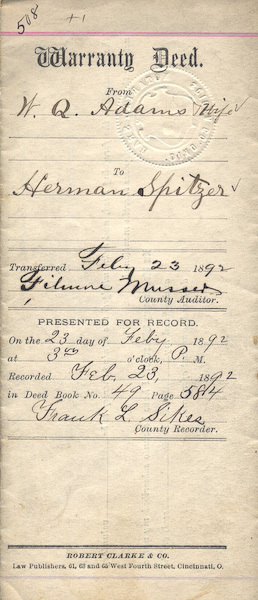 508 +1
Warranty Deed.
From
W. Q. Adams & Wife
To
Herman Spitzer
Transferred Feby 23 1892
Musser
County Auditor.
PRESENTED FOR RECORD.
On the 23 day of Feby 1892
at 3 o'clock, P. M.
Recorded Feb. 23, 1892
in Deed Book No. 49 Page 584
Frank L. Sikes
County Recorder.
ROBERT CLARKE & CO.
Law Publishers, 61, 63 and 65 West Fourth Street, Cincinnati, O.